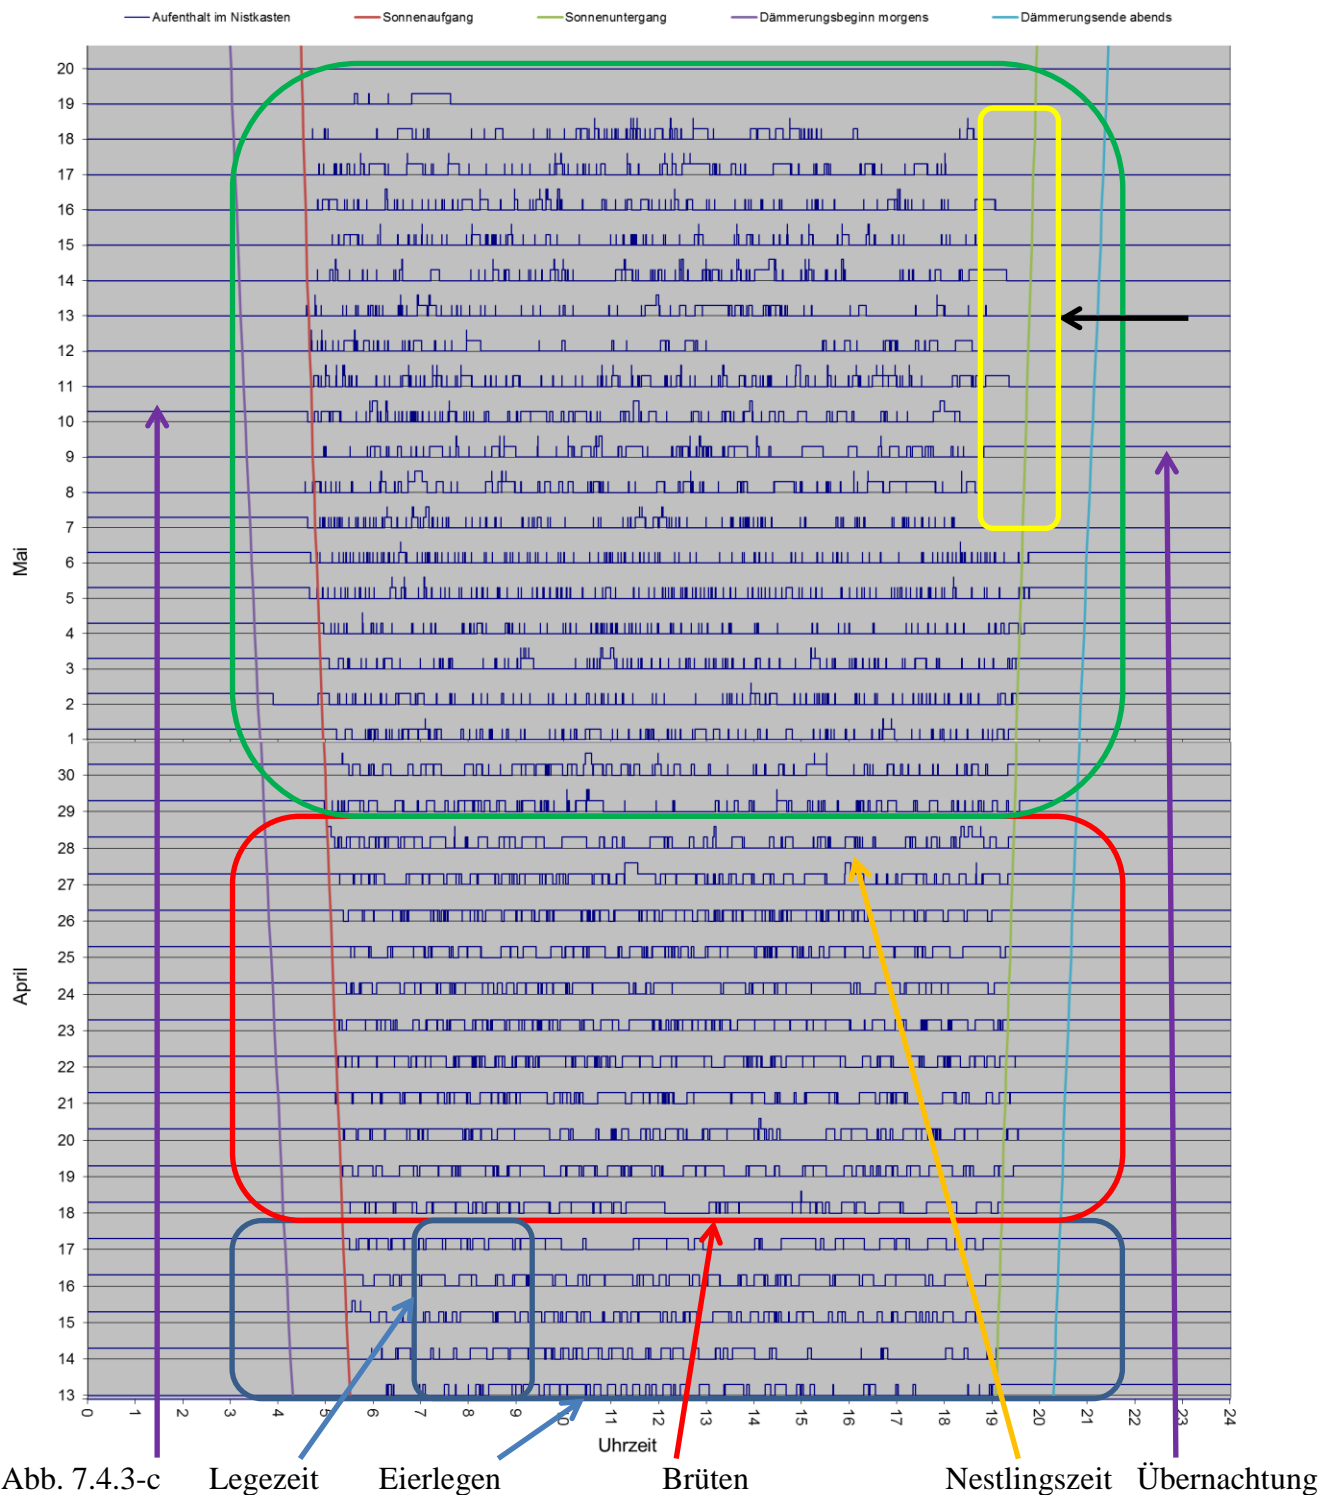 Aufenthalt im Nistkasten Sonnenaufgang Sonnenuntergang Dämmerungsbeginn morgens Dämmerungsende abends
20
19
18
17
16
15
14
13
12
11
10
9
8
7
Mai
6
5
4
3
2
1
30
29
28
27
26
25
April
24
23
22
21
20
19
18
17
16
15
14
13
0 1 2 3 4 5 6 7 8 9 10 11 12 13 14 15 16 17 18 19 20 21 22 23 24
Uhrzeit
Abb. 7.4.3-c Legezeit Eierlegen Brüten Nestlingszeit Übernachtung